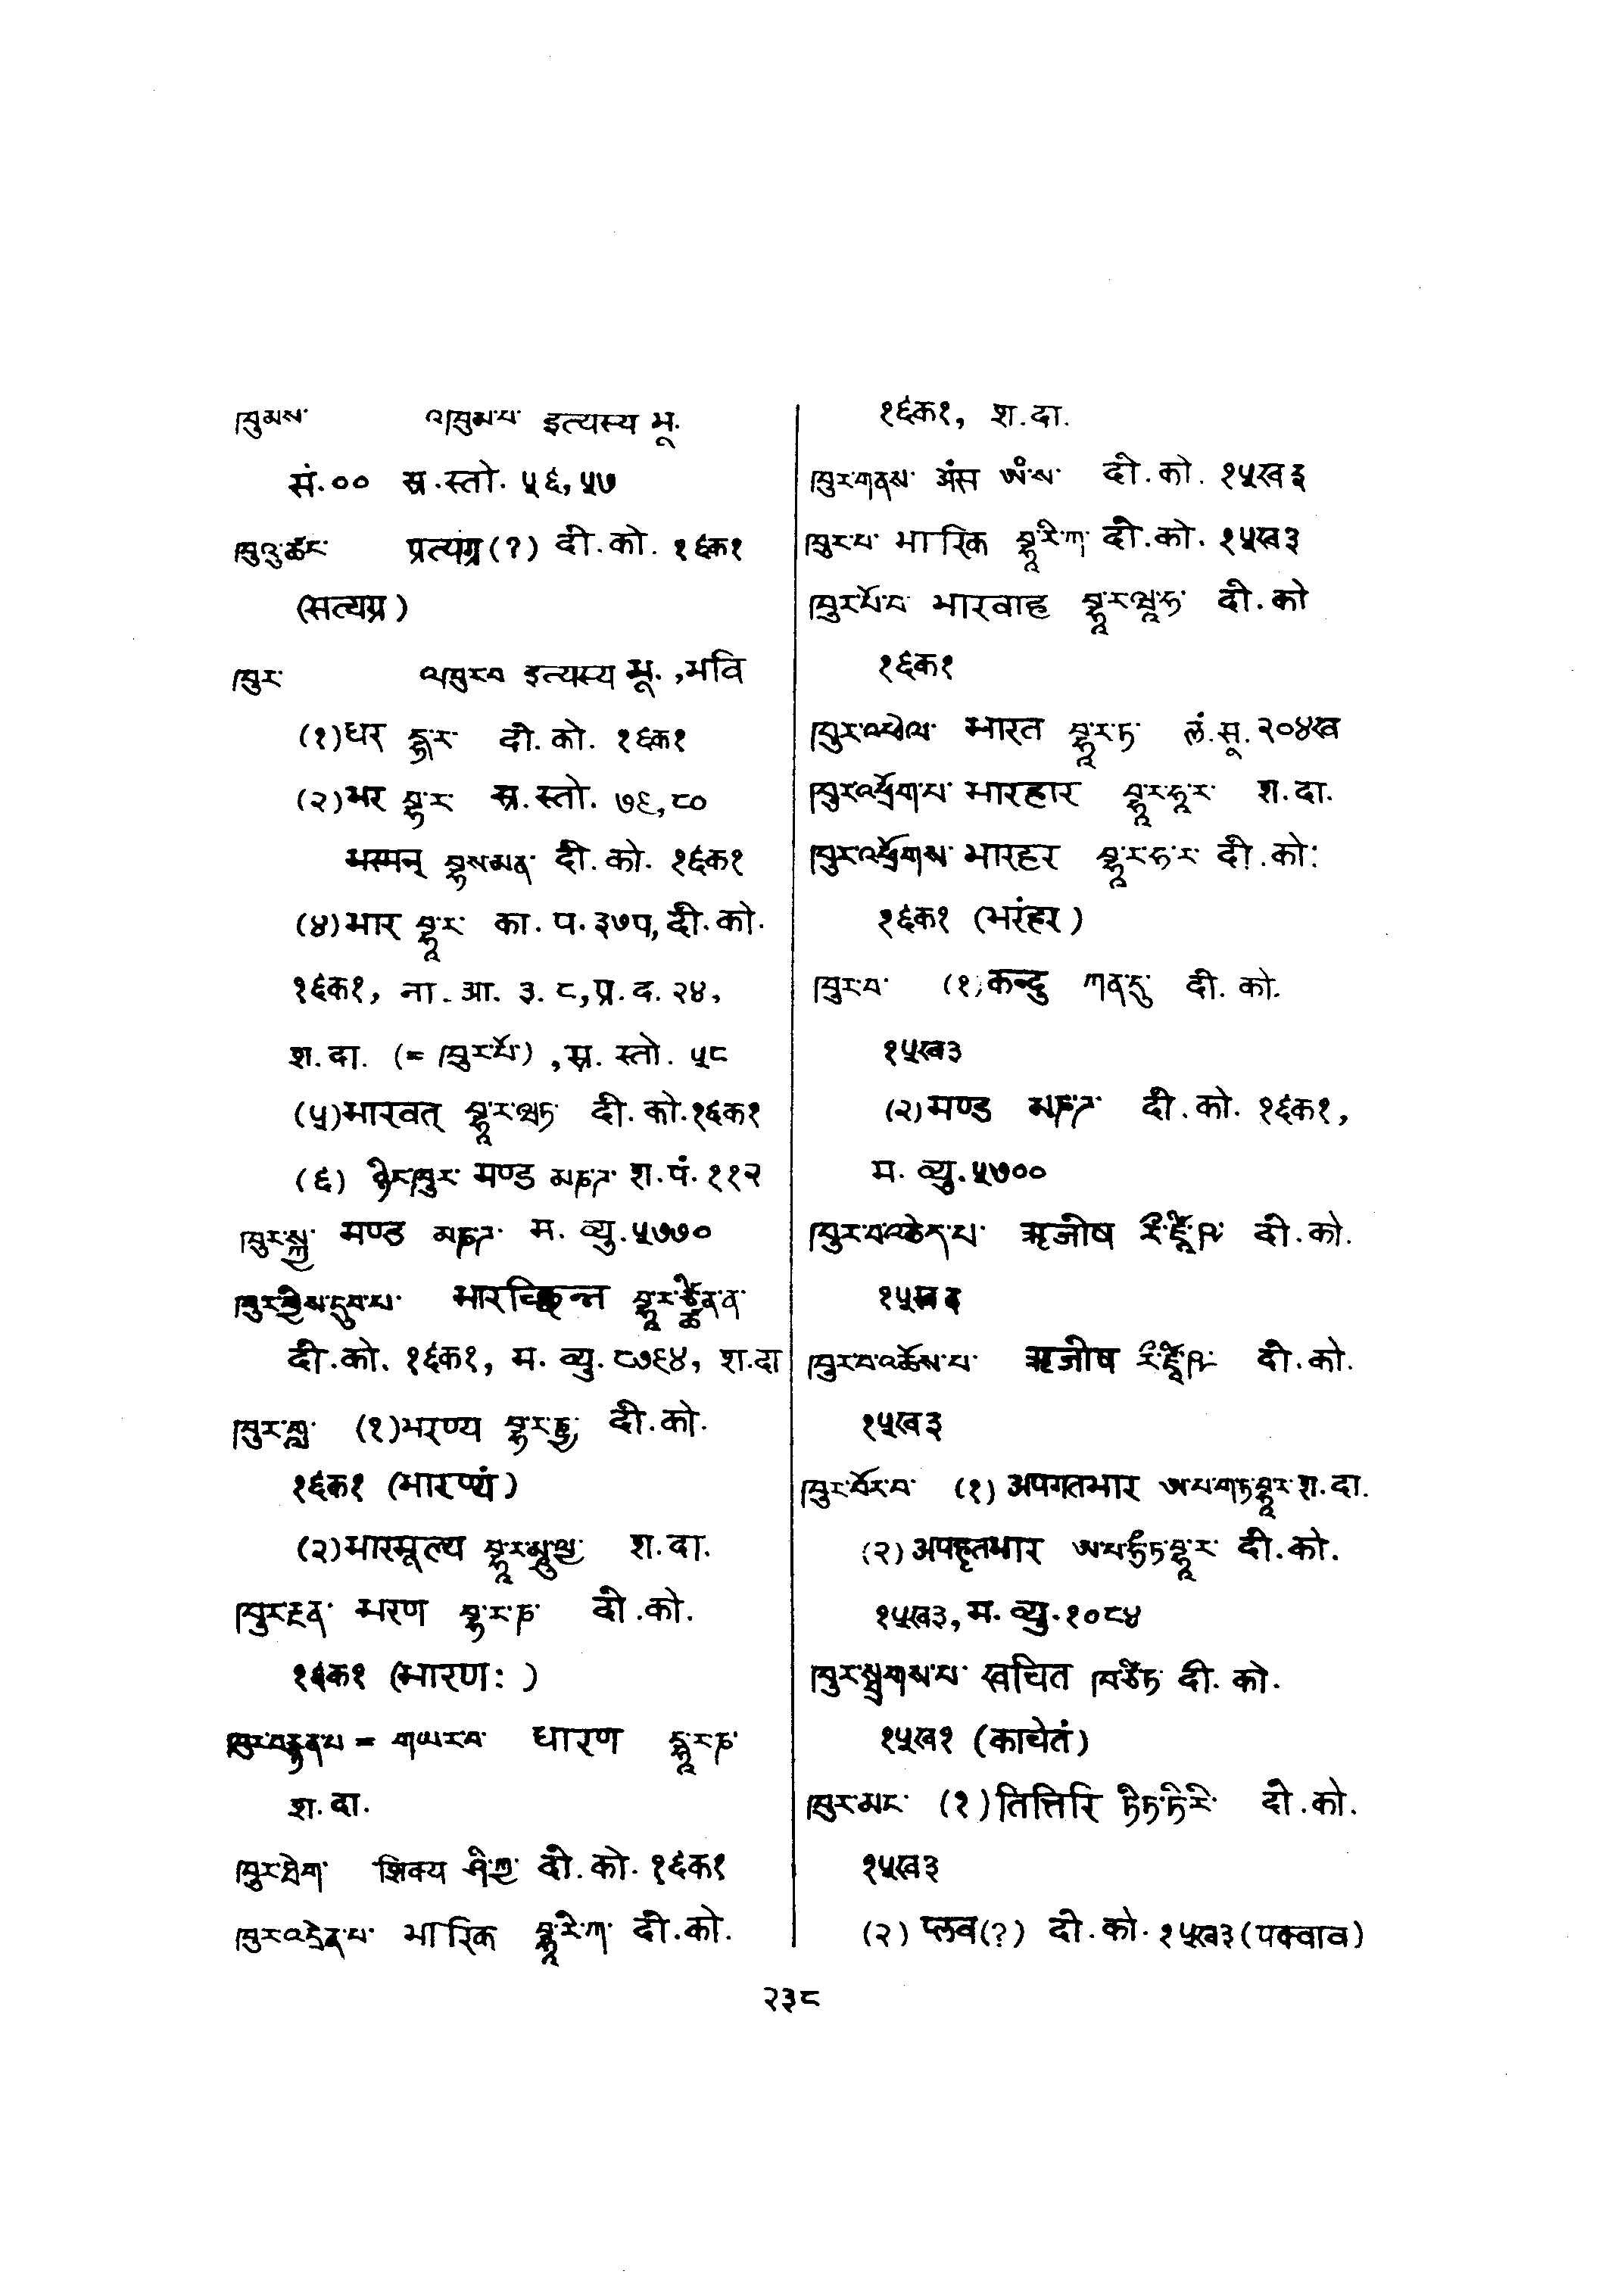 ཁུམས་ འཁུམ་པ་ इत्यस्य भू.
सं.०० स्र.स्तो. ५६,५७
ཁུའུ་ཚང་ प्रत्यग्र(?) दी.को. १६क१
(सत्यग्र)
ཁུར་ འཁུར་བ इत्यस्य भू.,भवि
(१)धर དྷ་ར་ दी.को. १६क१
(२)भर བྷ་ར་ स्र.स्तो. ७९,८०
भस्मन् བྷསམན་ दी.को. १६क१
(४)भार བྷཱ་ར་ का.प.३७५,दी.को.
१६क१, ना.आ. ३.८,प्र.द.२४,
श.दा. (= ཁུར་པོ་),स्र.स्तो. ५८
(५)भारवत् བྷཱ་ར་ཝཏ་ दी.को.१६क१
(६) ཉེར་ཁུར་ मण्ड མཎ་ཌ་ श.पं.११२
ཁུར་སྐྱ་ मण्ड མཎ་ཌ་ म.व्यु.५७७०
ཁུར་གྱིས་དུབ་པ་
दी.को. १६क१, म.व्यु.८७९४, श.दा
ཁུར་གླ་ (१)भरण्य བྷ་ར་ཎྱ་ दी.को.
१६क१ (भारण्यं)
(२)भारमूल्य བྷཱ་ར་མཱུ་ལྱ་ श.दा.
ཁུར་རྔན་ भरण བྷ་ར་ཎ་ दी.को.
१६क१ (भारणः)
= གཡར་བ་ धारण དྷཱ་ར་ཎ་
श.दा.
ཁུར་ཐེག་ शिक्य ཤི་ཀྱ་ दी.को. १६क१
ཁུར་འདྲེན་པ་ भारिक བྷཱ་རི་ཀ་ दी.को.
१६क१, श.दा.
ཁུར་གནས་ अंस ཨཾ་ས་ दी.को. १५ख३
ཁུར་པ་ भारिक བྷཱ་རི་ཀ་ दी.को. १५ख३
ཁུར་པོ་བ་ भारवाह བྷཱ་ར་ཝཱ་ཧ་ दी.को
१६क१
ཁུར་འཕེལ་ भारत བྷཱ་ར་ཏ་ लं.सू.२०४ख
ཁུར་འཕྲོག་པ་ भारहार བྷཱ་ར་ཧཱ་ར་ श.दा.
ཁུར་འཕྲོགས་ भारहर བྷཱ་ར་ཧ་ར་ दी.को:
१६क१ (भरंहर)
ཁུར་བ་ (१)कन्दु ཀན་དུ་ दी.को.
१५ख३
(२)मण्ड མཎ་ཌ་ दी.को. १६क१,
म.व्यु.५७००
ཁུར་བ་འཆེད་པ་ ऋजीष རྀ་ཛཱི་ཥ་ दी.को.
१५ख३
ཁུར་བ་འཚོས་པ་ ऋजीष རྀ་ཛཱི་ཥ་ दी.को.
१५ख३
ཁུར་བོར་བ་ (१)अपगतभार ཨ་པ་གཏ་བྷཱ་ར་ श.दा.
(२)अपहृतभार ཨ་པ་ཧྲྀཏ་བྷཱ་ར་ दी.को.
१५ख३,म.व्यु.१०८४
ཁུར་སྤྲུགས་པ་ खचित ཁ་ཙི་ཏ दी.को.
१५ख१ (काचेतं)
ཁུར་མང་ (१)तित्तिरि ཏི་ཏ་ཏི་རི་ दी.को.
१५ख३
(२) प्लव(?) दी.को.१५ख३(पक्वाव)
२३८